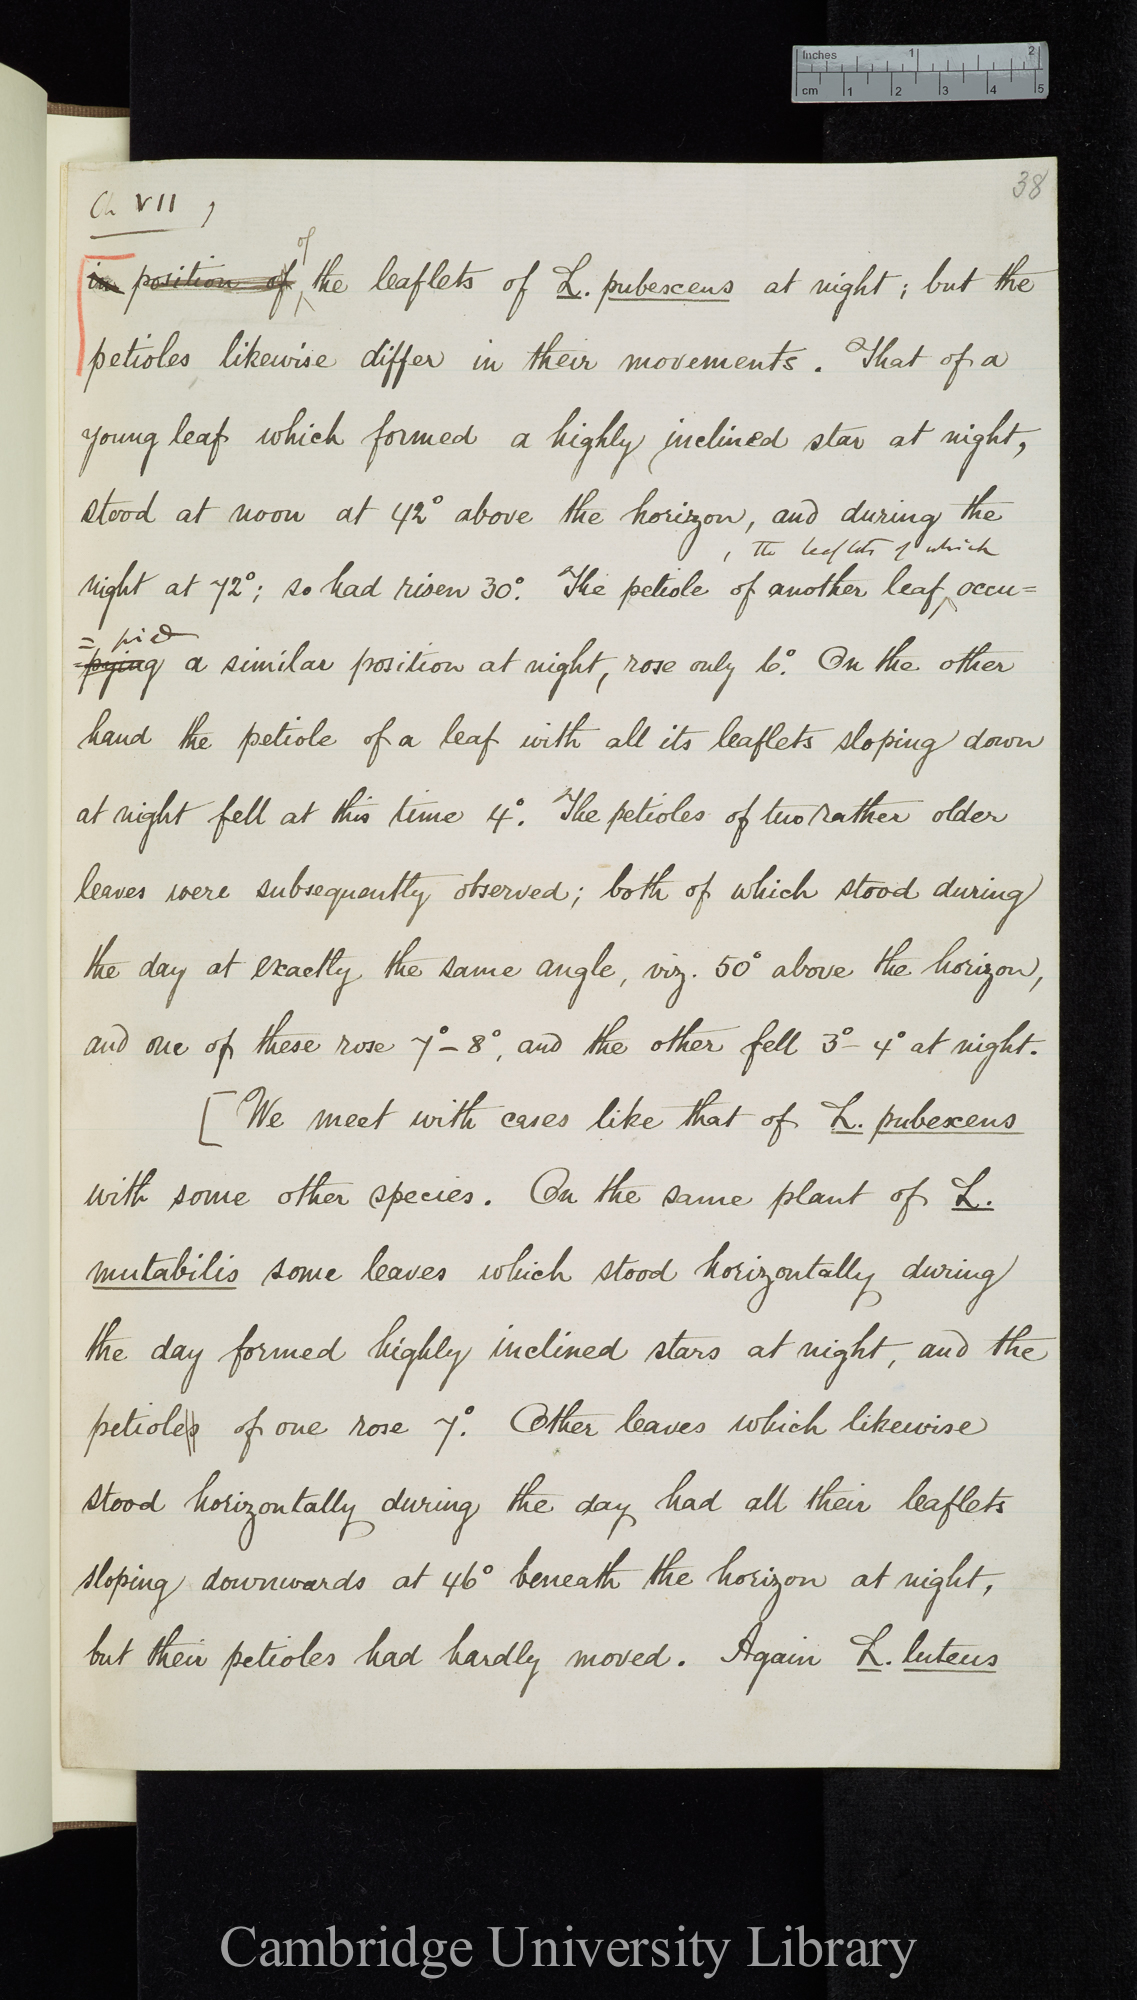 Inches 1 2
cm 1 2 3 4 5
38
Ch VII,
of
in position of the leaflets of L. pubescens at night; but the
petioles likewise differ in their movements. That of a
young leaf which formed a highly inclined star at night,
stood at noon at 42° above the horizon, and during the
, the leaflets of which
night at 72°; so had risen 30°. The petiole of another leaf occu=
= pied
=pying a similar position at night, rose only 6°. On the other
hand the petiole of a leaf with all its leaflets sloping down
at night fell at this time 4°. The petioles of two rather older
leaves were subsequently observed; both of which stood during
the day at exactly the same angle, viz. 50° above the horizon,
and one of these rose 7°-8°, and the other fell 3°-4° at night.
[We meet with cases like that of L. pubescens
with some other species. On the same plant of L.
mutabilis some leaves which stood horizontally during
the day formed highly inclined stars at night, and the
petioles of one rose 7°. Other leaves which likewise
stood horizontally during the day had all their leaflets
sloping downwards at 46° beneath the horizon at night,
but their petioles had hardly moved. Again L. luteus
Cambridge University Library